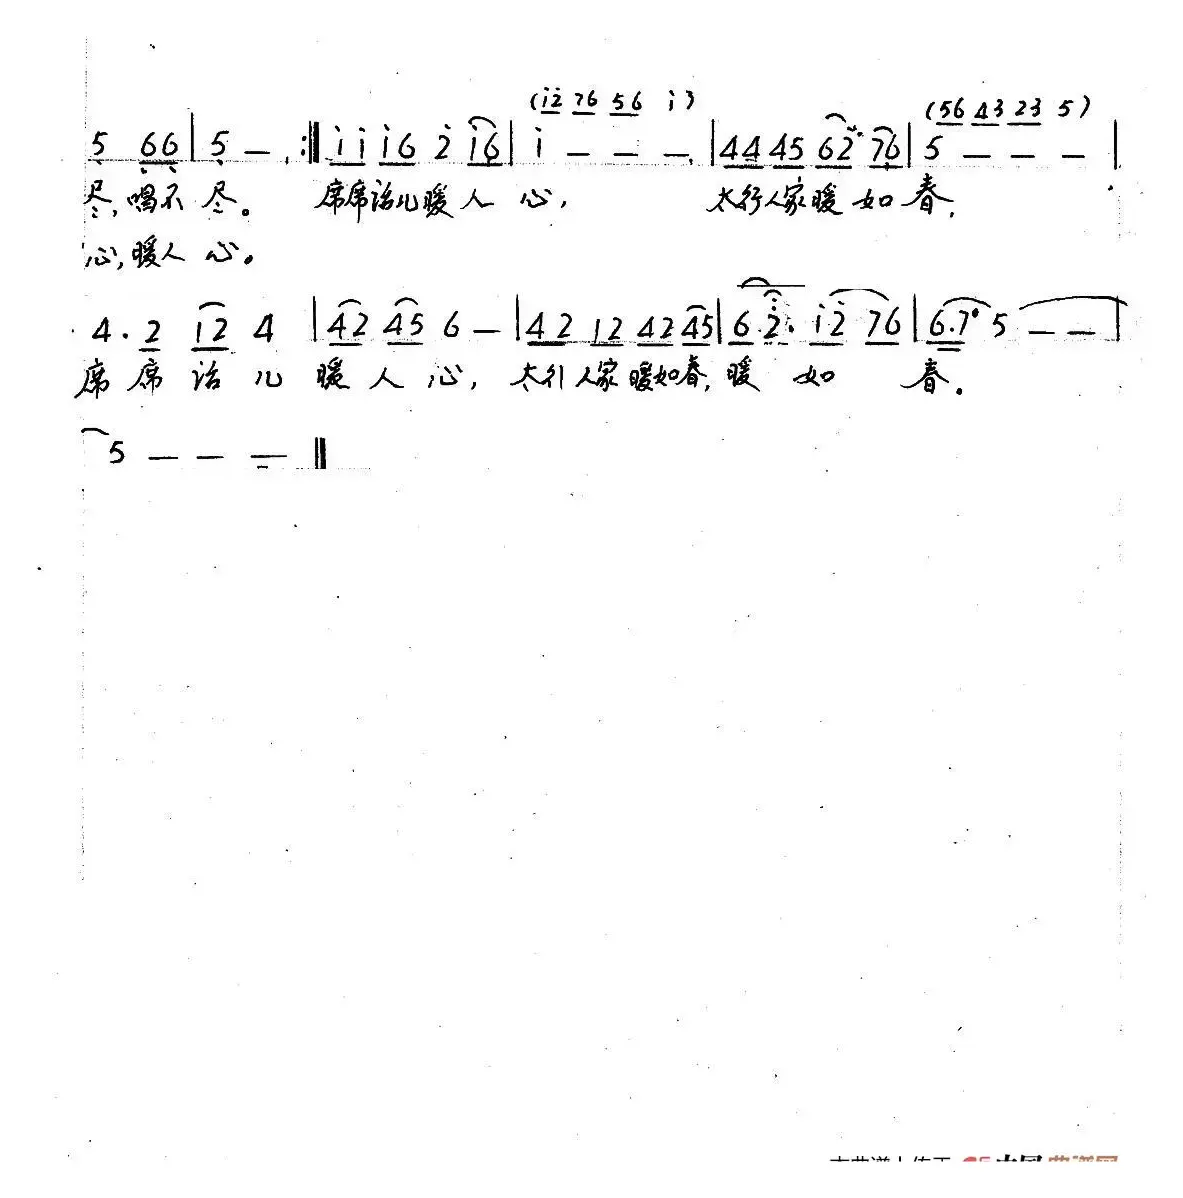 (i̇2̇ 76 56 i̇3) (56 43 23 5)
5 66 | 5 — :‖ i̇ i̇ i̇6 2̇ i̇6 | i̇ — — — | 44 45 62 76 | 5 — — — |
尽,唱不 尽。 席席话儿暖人 心, 太行人家暖如春,
心,暖人 心。
4· 2 12 4 | 42 45 6 — | 42 12 42 45 | 6 2̇· i̇2̇ 76 | 6·7 5 — — |
席 席 话 儿 暖 人 心, 太行人家暖如春, 暖 如 春。
5 — — — ‖